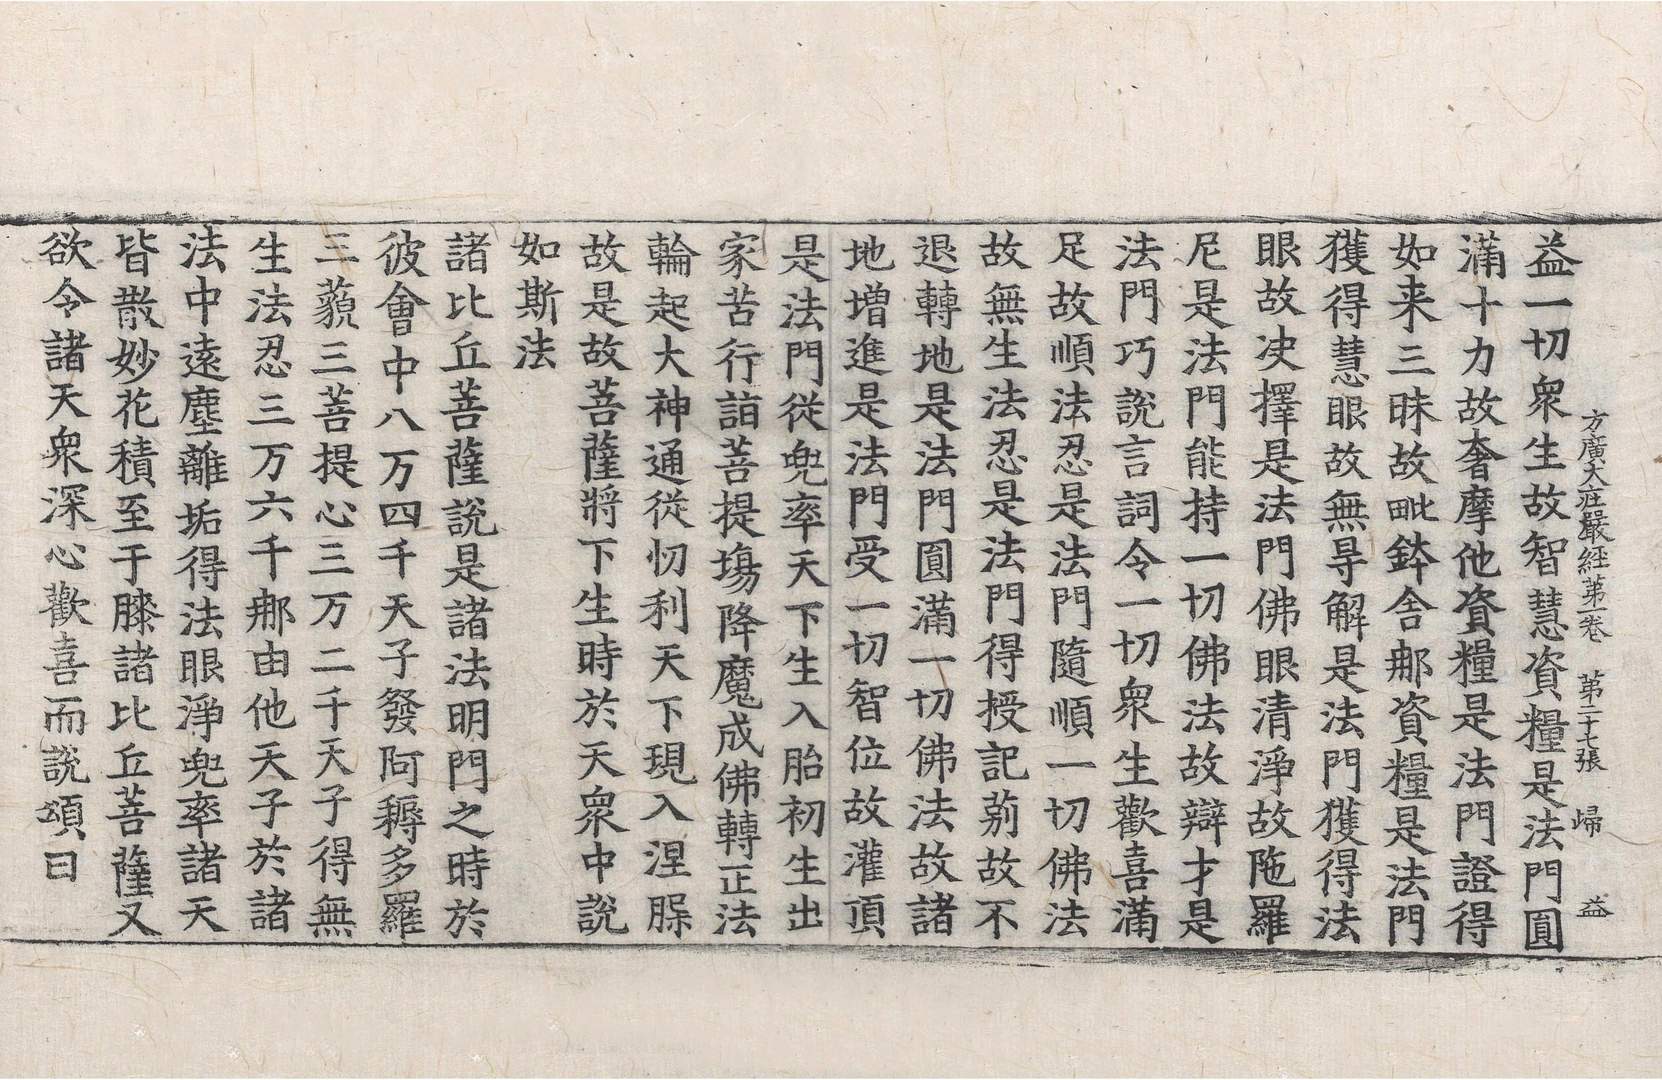 方廣大莊嚴經第一卷 第二十七張 歸 益
益一切衆生故智慧資糧是法門圓
滿十力故奢摩他資糧是法門證得
如来三昧故毗鉢舍𨚗資糧是法門
獲得慧眼故無㝵解是法門獲得法
眼故决擇是法門佛眼清淨故陁羅
尼是法門能持一切佛法故辯才是
法門巧說言詞令一切衆生歡喜滿
足故順法忍是法門隨順一切佛法
故無生法忍是法門得授記莂故不
退轉地是法門圓滿一切佛法故諸
地增進是法門受一切智位故灌頂
是法門從兜率天下生入胎初生出
家苦行詣菩提場降魔成佛轉正法
輪起大神通從忉利天下現入涅槃
故是故菩薩將下生時於天衆中說
如斯法
諸比丘菩薩說是諸法明門之時於
彼會中八万四千天子發阿耨多羅
三藐三菩提心三万二千天子得無
生法忍三万六千𨚗由他天子於諸
法中遠塵離垢得法眼淨兜率諸天
皆散妙花積至于膝諸比丘菩薩又
欲令諸天衆深心歡喜而說頌曰